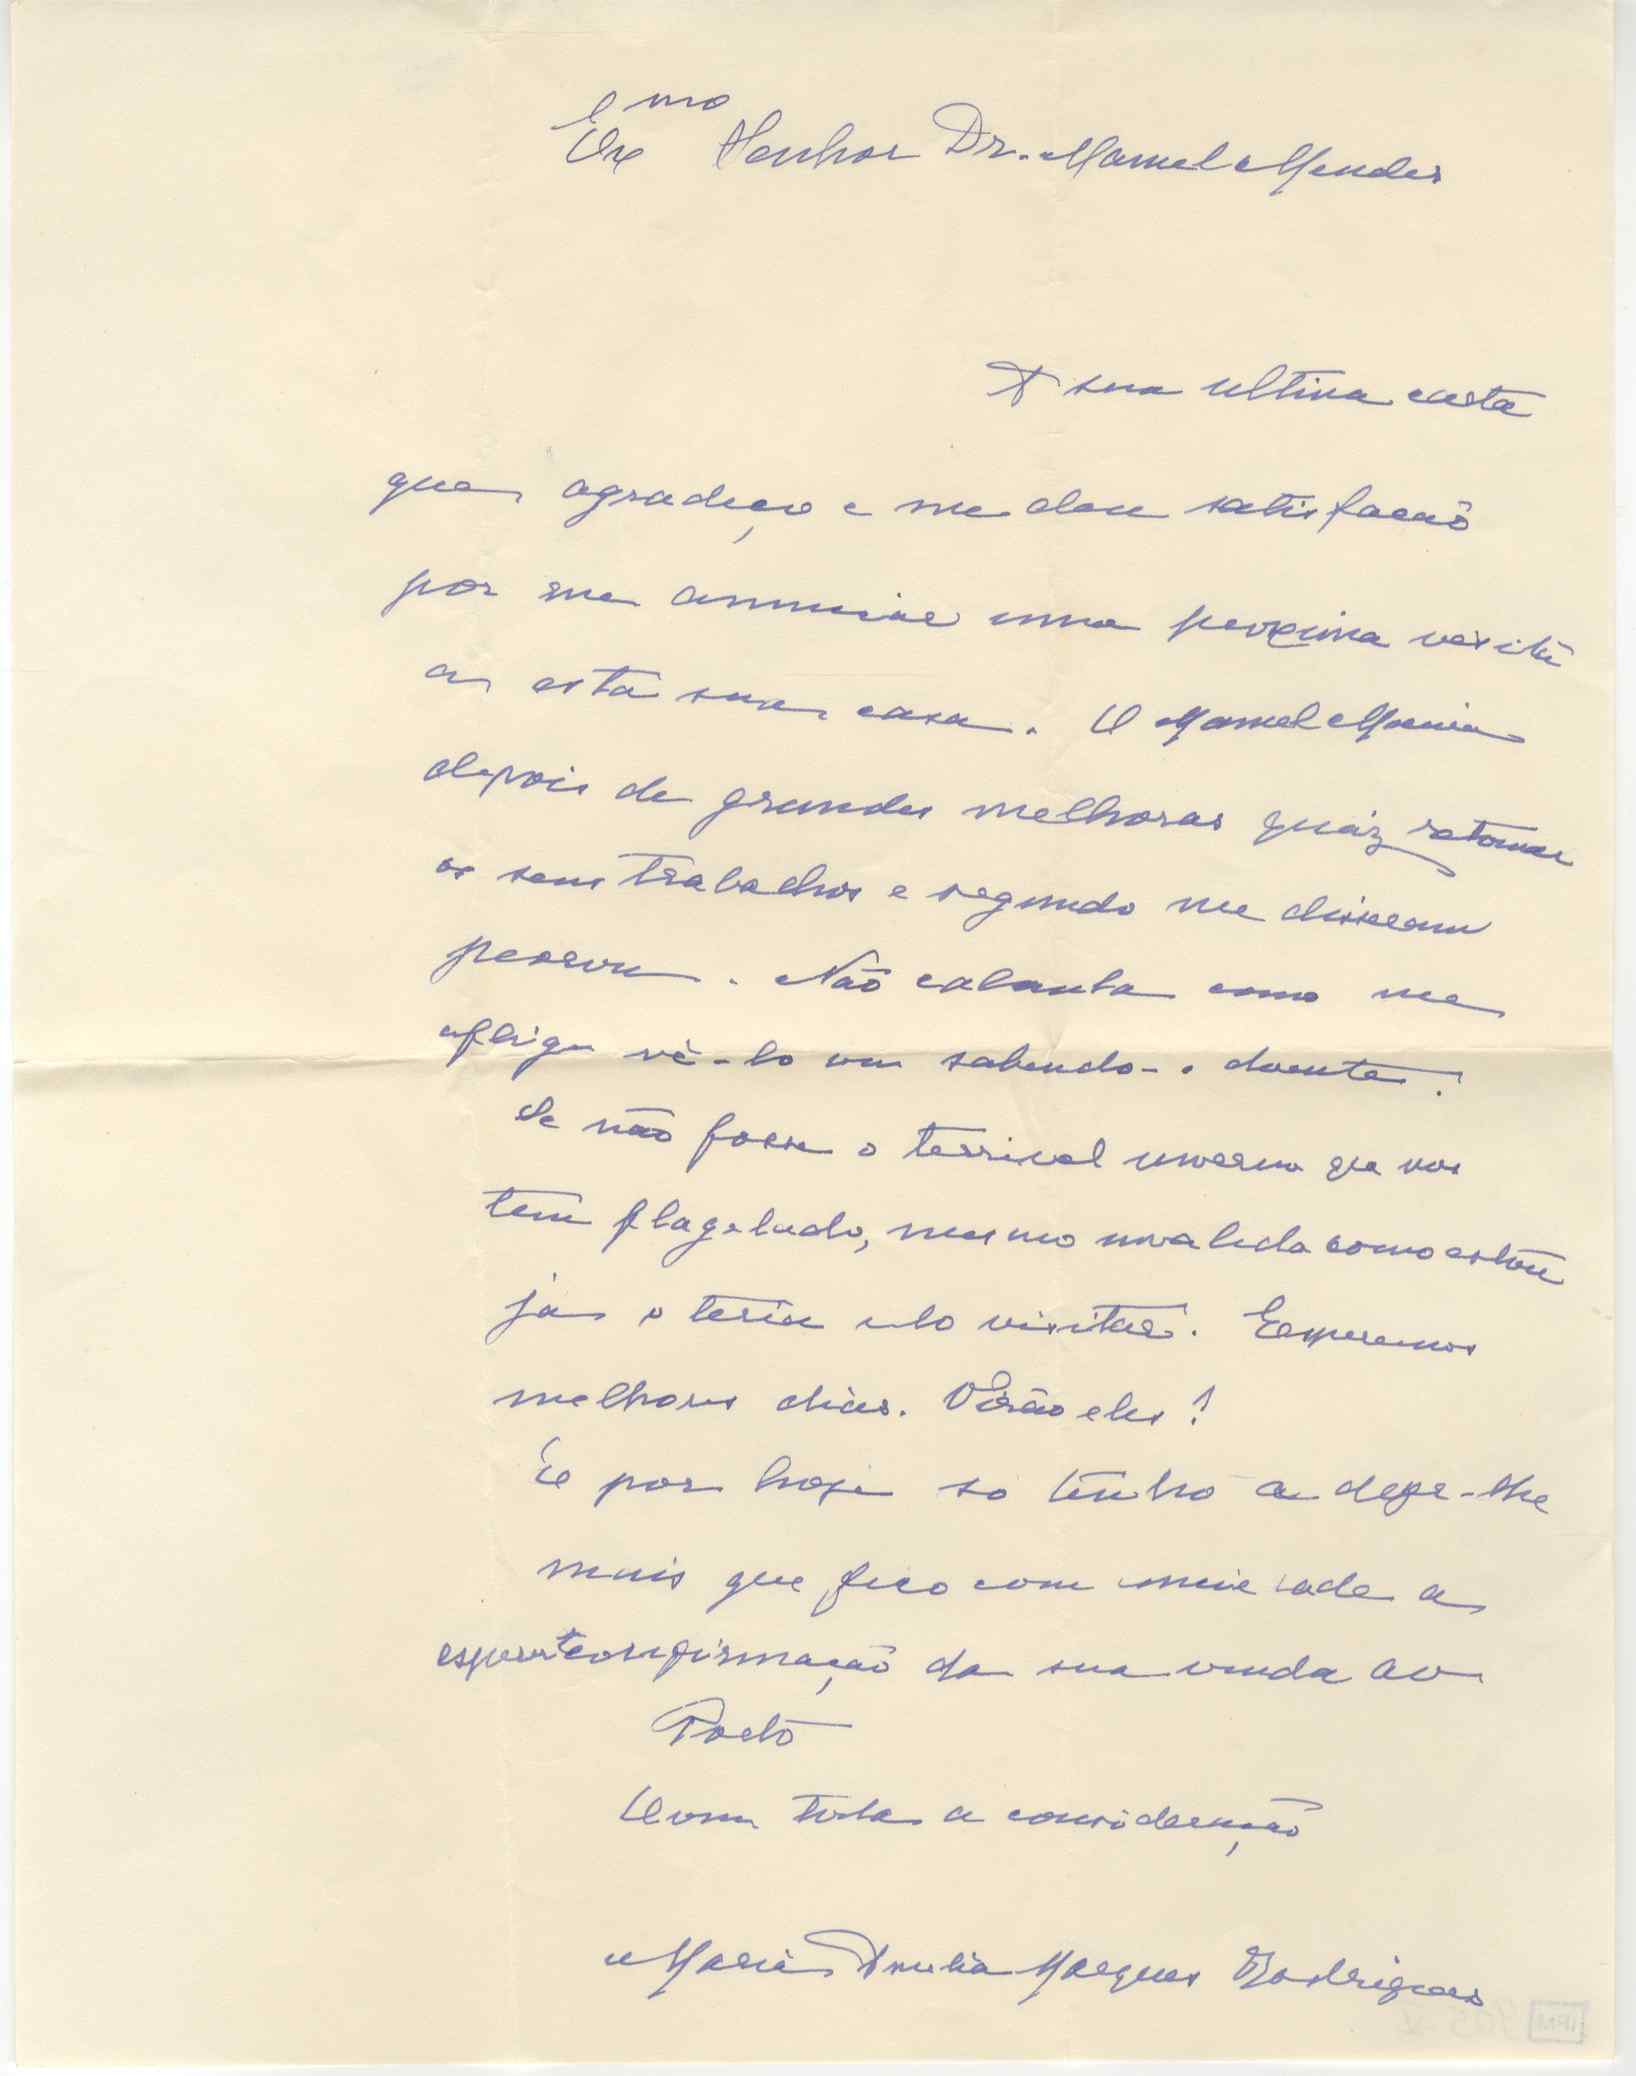 Exmo Senhor Dr. Manuel Mendes
A sua ultima carta
que agradeço e me deu satisfacão
por me anunciar uma proxima visita
a esta sua casa. O Manuel Maria
depois de grandes melhoras quiz retomar
os seus trabalhos e segundo me disseram
peorou. Não calcula como me
aflige vê-lo ou sabendo-o doente!
Se não fosse o terrivel inverno que nos
tem flagelado, mesmo invalida como estou
já o teria ido visitar. Esperemos
melhores dias. Virão eles!
E por hoje só tenho a dizer-lhe
mais que fico com ansiedade a
espera confirmação da sua vinda ao
Porto
Com toda a consideração
Maria Amelia Marques Rodrigues